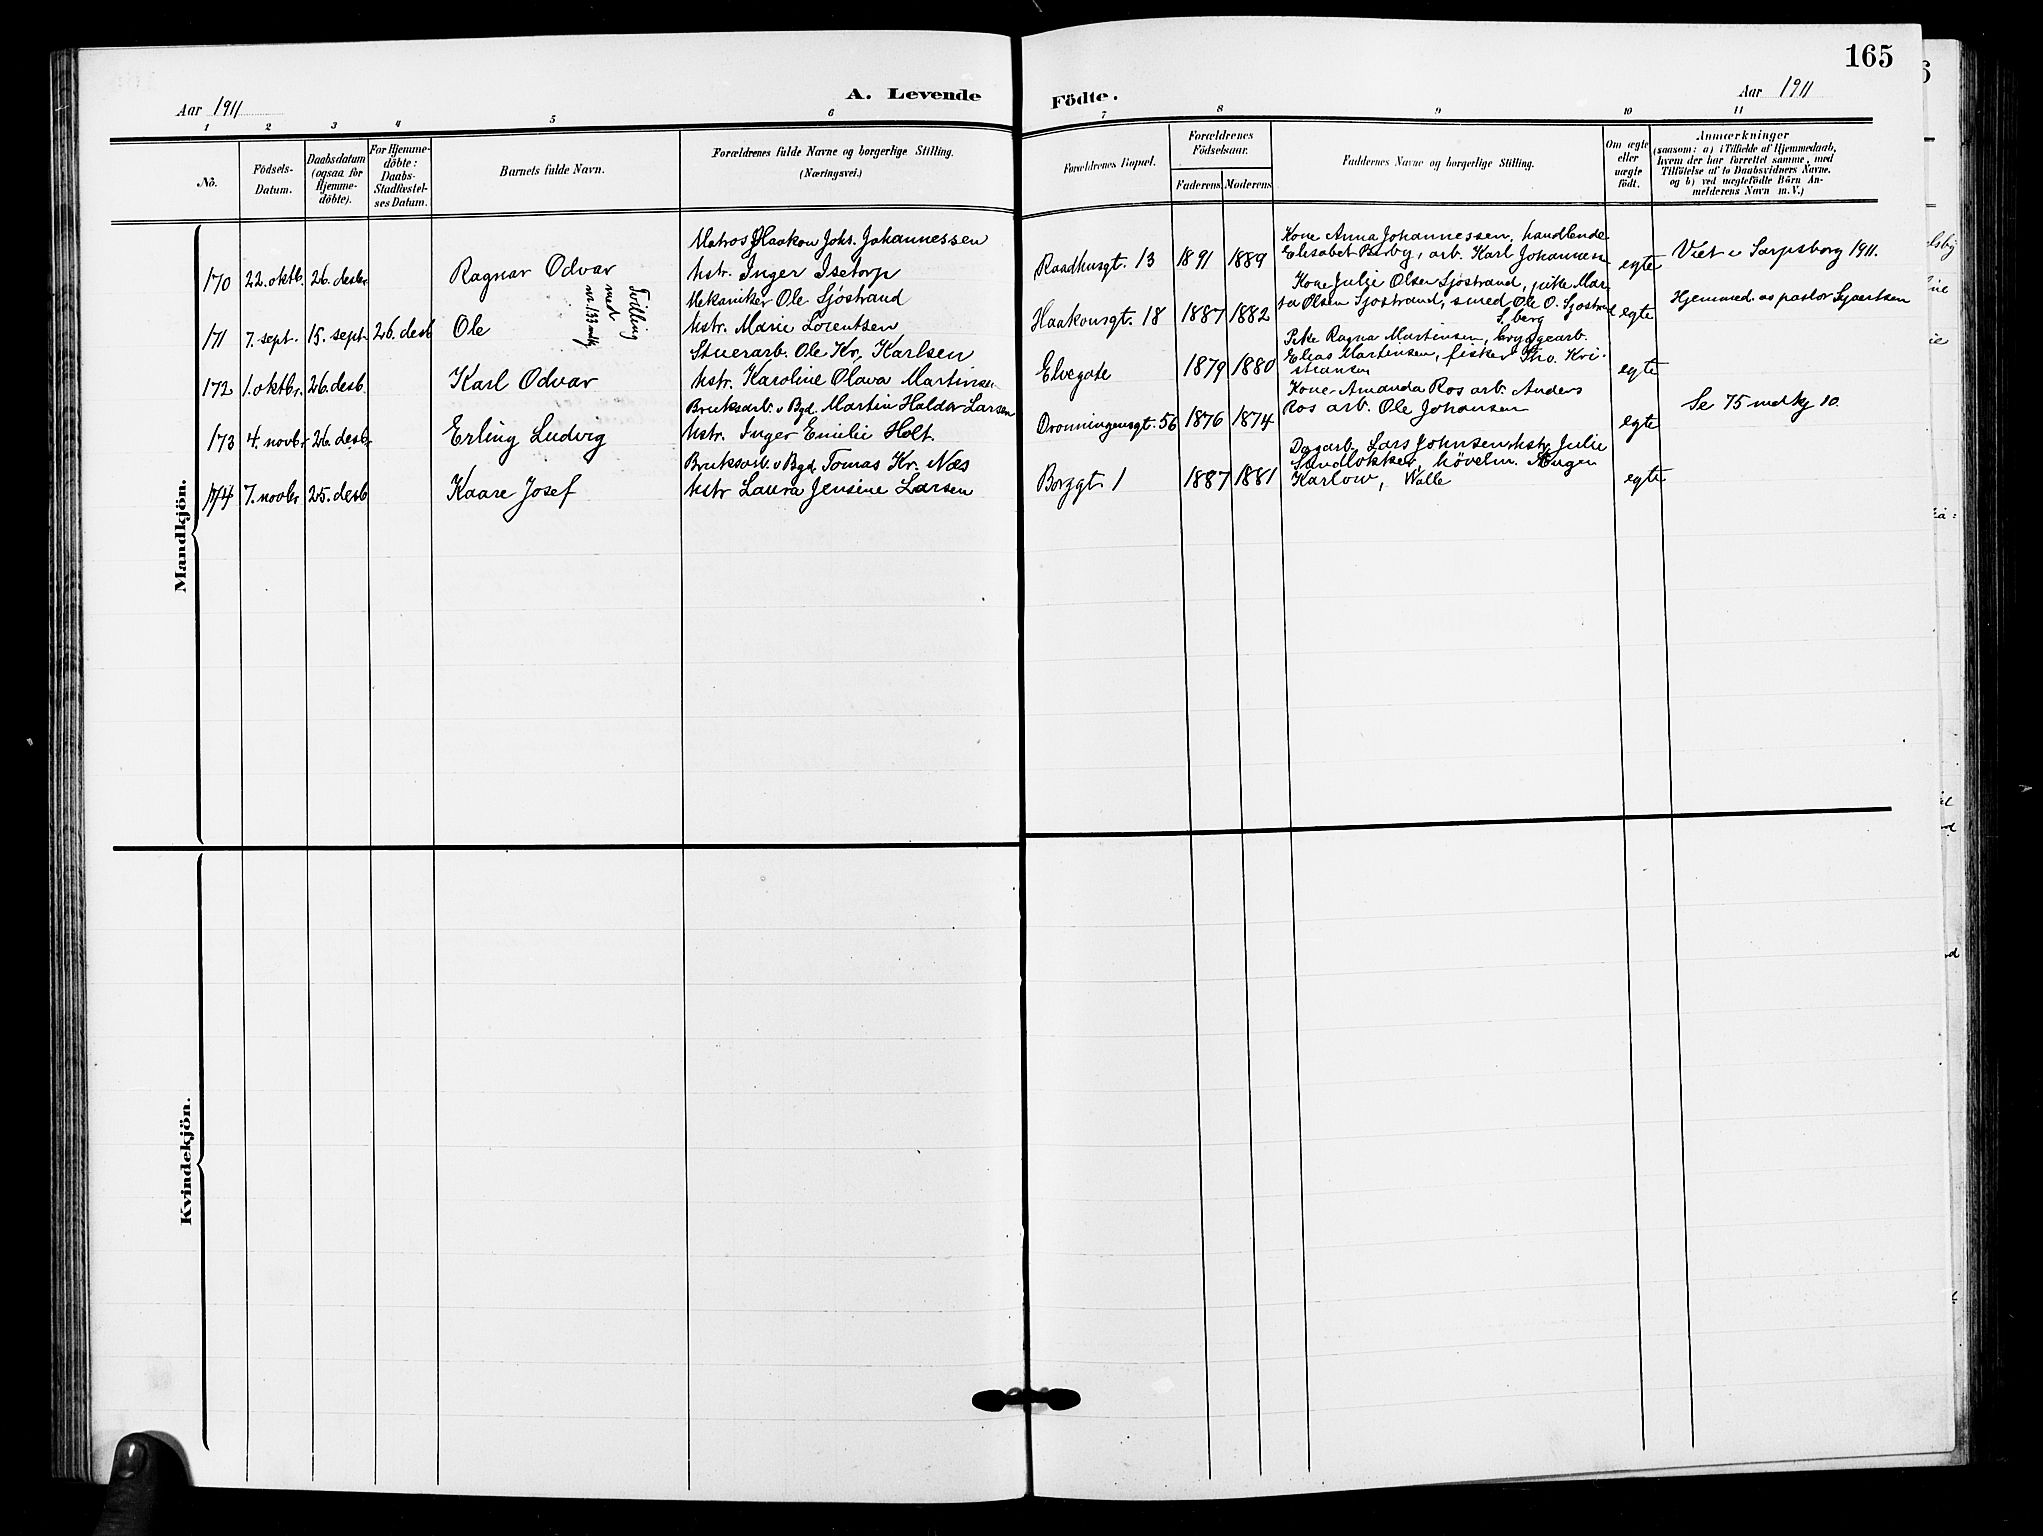 165
Aar 1911
A. Levende
Födte.
Aar 1911
1 2 3 4 5 6 7 8 9 10 11
No.
Födsels-
Datum.
Daabsdatum
(ogsaa for
Hjemme-
döbte).
For Hjemme-
döbte:
Daabs-
Stadfæstel-
ses Datum.
Barnets fulde Navn.
Forældrenes fulde Navne og borgerlige Stilling.
(Næringsvei.)
Forældrenes Bopæl.
Forældrenes
Födselsaar.
Faderens. Moderens.
Faddernes Navne og borgerlige Stilling.
Om ægte
eller
uægte
födt.
Anmærkninger
(saasom: a) i Tilfælde af Hjemmedaab,
hvem der har forrettet samme, med
Tilföielse af to Daabsvidners Navne,
og b) ved uægtefödte Börn An-
melderens Navn m. V.)
Mandkjön.
170 22. oktb. 26. desbr Ragnar Odvar
Matros Haakon Johs. Johannessen
hstr. Inger Isetorp
Raadhusgt. 13 1891 1889
Kone Anna Johannessen, handlende
Elisabet Berby, arb. Karl Johannesen
egte
Viet i Sarpsborg 1911.
171 7. sept. 15. sept 26. desb Ole
Tvilling
med
nr. 133 mdkj
Mekaniker Ole Sjöstrand
hstr. Marie Lorentsen
Haakonsgt. 18 1887 1882
Kone Julie Olsen Sjöstrand, pike Mar-
ta Olsen Sjöstrand, smed Ole O. Sjöstrand
S. berg
egte
Hjemmed. av pastor
172 1. oktbr. 26. desb. Karl Odvar
Stuerarb. Ole Kr. Karlsen
hstr. Karoline Olava Martinsen
Elvegate 1879 1880
Pike Ragna Martinsen, bryggearb.
Elias Martinsen, fisker Tho. Kri-
stiansen
egte
173 4. novbr 26. desbr Erling Ludvig
Bruksarb. v Bgd. Martin Haldor Larsen
hstr. Inger Emilie Holt.
Dronningensgt. 56 1876 1874
Kone Amanda Ros arb. Anders
Ros arb. Ole Johansen
egte
Se 75 mdkj 10.
174 7. novbr 25. desb Kaare Josef
Bruksarb. v Bgd. Tomas Kr. Næs
hstr Laura Jensine Larsen
Borggt 1 1887 1881
Dagarb. Lars Johnsen, hstr Julie
Sandlökken, hövelm.
Karlow, Walle
egte
Kvindekjön.